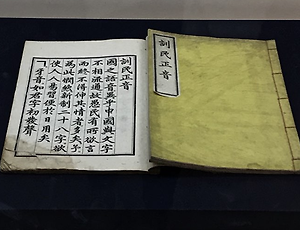 訓民正音
訓民正音
國之語音異乎中國與文字
不相流通故愚民有所欲言
而終不得伸其情者多矣予
為此憫然新制二十八字欲
使人人易習便於日用矣
ㄱ牙音如君字初發聲